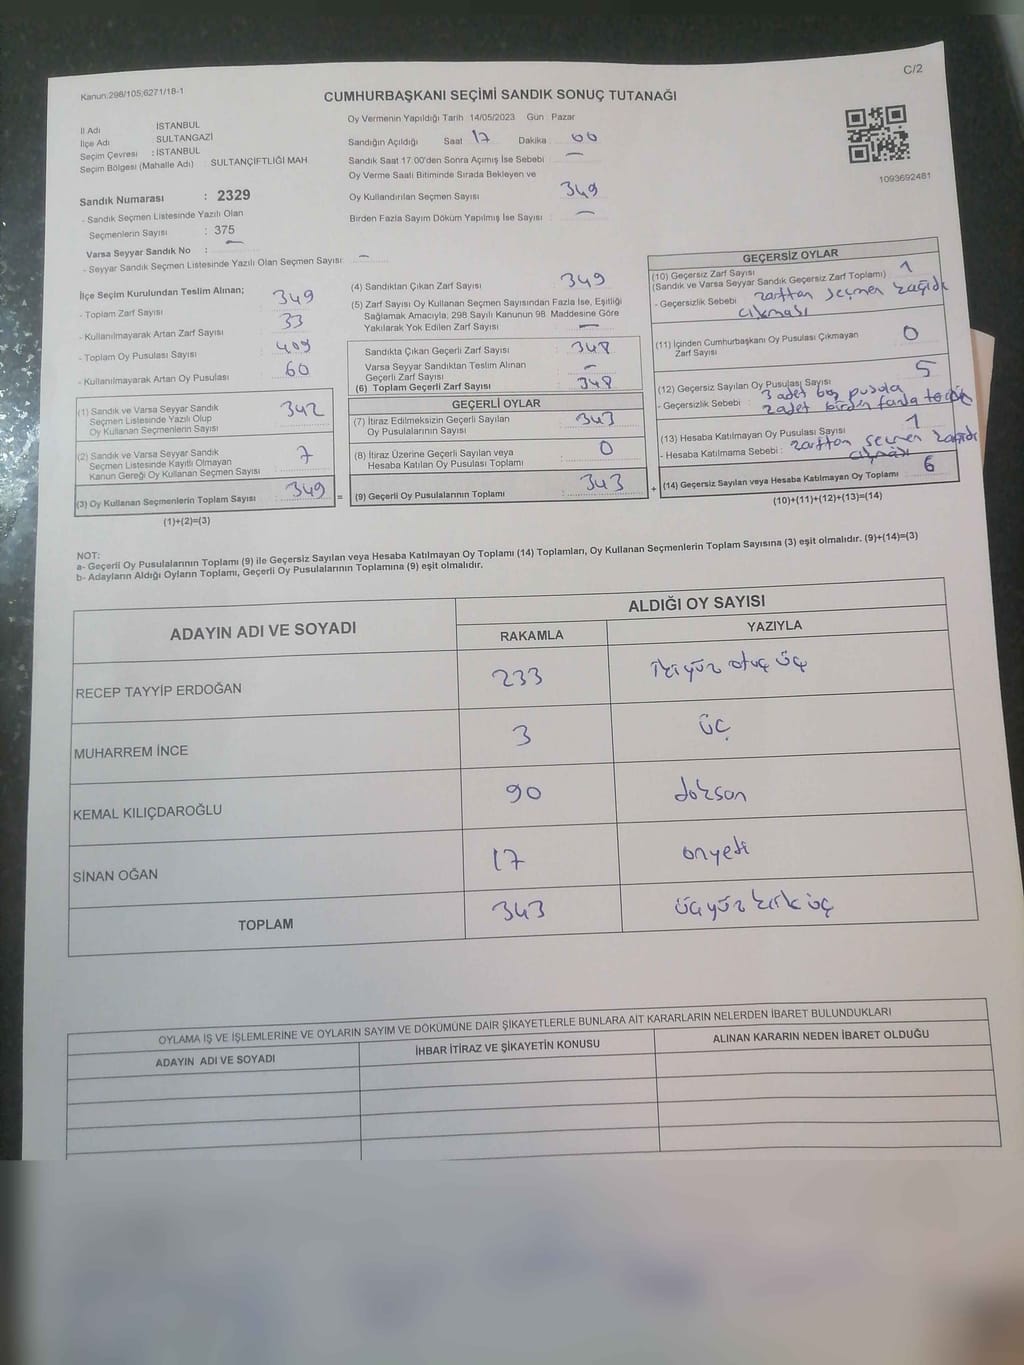 C/2
Kanun:298/105;6271/18-1
CUMHURBAŞKANI SEÇİMİ SANDIK SONUÇ TUTANAĞI
İl Adı İSTANBUL
İlçe Adı SULTANGAZİ
Seçim Çevresi : İSTANBUL
Seçim Bölgesi (Mahalle Adı) : SULTANÇİFTLİĞİ MAH
Sandık Numarası : 2329
- Sandık Seçmen Listesinde Yazılı Olan
Seçmenlerin Sayısı : 375
Varsa Seyyar Sandık No : —
- Seyyar Sandık Seçmen Listesinde Yazılı Olan Seçmen Sayısı: —
Oy Vermenin Yapıldığı Tarih 14/05/2023 Gün Pazar
Sandığın Açıldığı Saat 17 Dakika 00
Sandık Saat 17.00'den Sonra Açımış İse Sebebi —
Oy Verme Saati Bitiminde Sırada Bekleyen ve
Oy Kullandırılan Seçmen Sayısı 349
Birden Fazla Sayım Döküm Yapılmış İse Sayısı : —
1093692481
İlçe Seçim Kurulundan Teslim Alınan;
- Toplam Zarf Sayısı 349
- Kullanılmayarak Artan Zarf Sayısı 33
- Toplam Oy Pusulası Sayısı 409
- Kullanılmayarak Artan Oy Pusulası 60
(1) Sandık ve Varsa Seyyar Sandık
Seçmen Listesinde Yazılı Olup
Oy Kullanan Seçmenlerin Sayısı 342
(2) Sandık ve Varsa Seyyar Sandık
Seçmen Listesinde Kayıtlı Olmayan
Kanun Gereği Oy Kullanan Seçmen Sayısı 7
(3) Oy Kullanan Seçmenlerin Toplam Sayısı 349 =
(1)+(2)=(3)
(4) Sandıktan Çıkan Zarf Sayısı 349
(5) Zarf Sayısı Oy Kullanan Seçmen Sayısından Fazla İse, Eşitliği
Sağlamak Amacıyla; 298 Sayılı Kanunun 98 Maddesine Göre
Yakılarak Yok Edilen Zarf Sayısı —
Sandıkta Çıkan Geçerli Zarf Sayısı 348
Varsa Seyyar Sandıktan Teslim Alınan
Geçerli Zarf Sayısı —
(6) Toplam Geçerli Zarf Sayısı 348
GEÇERLİ OYLAR
(7) İtiraz Edilmeksizin Geçerli Sayılan
Oy Pusulalarının Sayısı 343
(8) İtiraz Üzerine Geçerli Sayılan veya
Hesaba Katılan Oy Pusulası Toplamı 0
(9) Geçerli Oy Pusulalarının Toplamı 343 +
GEÇERSİZ OYLAR
(10) Geçersiz Zarf Sayısı
(Sandık ve Varsa Seyyar Sandık Geçersiz Zarf Toplamı) 1
- Geçersizlik Sebebi zarftan seçmen kağıdı
çıkması
(11) İçinden Cumhurbaşkanı Oy Pusulası Çıkmayan
Zarf Sayısı 0
(12) Geçersiz Sayılan Oy Pusulası Sayısı 5
- Geçersizlik Sebebi : 3 adet boş pusula
2 adet birden fazla tercih
(13) Hesaba Katılmayan Oy Pusulası Sayısı 1
- Hesaba Katılmama Sebebi : zarftan seçmen kağıdı
çıkması
(14) Geçersiz Sayılan veya Hesaba Katılmayan Oy Toplamı 6
(10)+(11)+(12)+(13)=(14)
NOT:
a- Geçerli Oy Pusulalarının Toplamı (9) ile Geçersiz Sayılan veya Hesaba Katılmayan Oy Toplamı (14) Toplamları, Oy Kullanan Seçmenlerin Toplam Sayısına (3) eşit olmalıdır. (9)+(14)=(3)
b- Adayların Aldığı Oyların Toplamı, Geçerli Oy Pusulalarının Toplamına (9) eşit olmalıdır.
ADAYIN ADI VE SOYADI ALDIĞI OY SAYISI
RAKAMLA YAZIYLA
RECEP TAYYİP ERDOĞAN 233 ikiyüz otuz üç
MUHARREM İNCE 3 üç
KEMAL KILIÇDAROĞLU 90 doksan
SİNAN OĞAN 17 onyedi
TOPLAM 343 üçyüz kırk üç
OYLAMA İŞ VE İŞLEMLERİNE VE OYLARIN SAYIM VE DÖKÜMÜNE DAİR ŞİKAYETLERLE BUNLARA AİT KARARLARIN NELERDEN İBARET BULUNDUKLARI
ADAYIN ADI VE SOYADI İHBAR İTİRAZ VE ŞİKAYETİN KONUSU ALINAN KARARIN NEDEN İBARET OLDUĞU